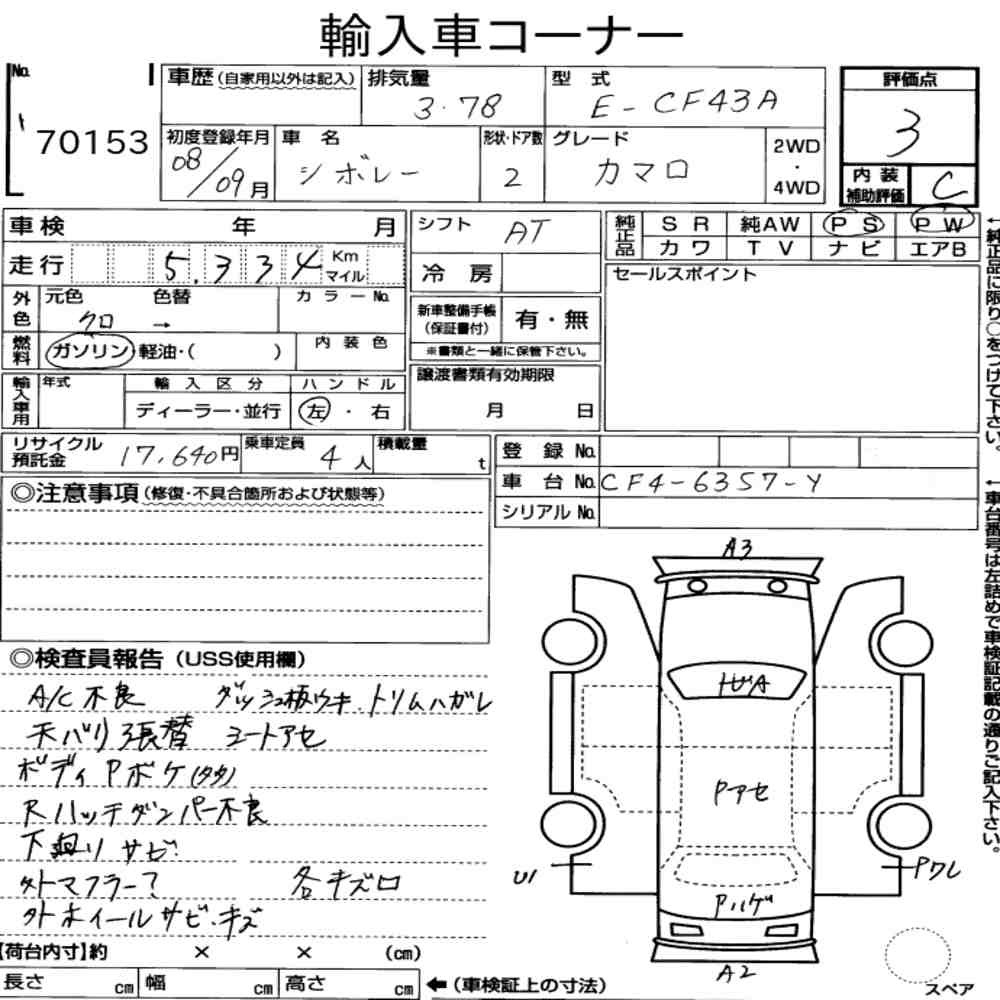 輸入車コーナー
No.
70153
車歴(自家用以外は記入)
排気量
3.78
型 式
E-CF43A
評価点
3
初度登録年月
08/09月
車 名
シボレー
形状・ドア数
2
グレード
カマロ
2WD
・
4WD
内 装
補助評価
C
車検 年 月
シフト AT
純正品
SR 純AW PS PW
カワ TV ナビ エアB
走行 5.334 Km マイル
冷 房
セールスポイント
外色
元色 色替 カラーNo.
クロ →
新車整備手帳
(保証書付)
有・無
※書類と一緒に保管下さい。
燃料
ガソリン・軽油・( )
内 装 色
輸入車用
年式 輸 入 区 分 ハ ン ド ル
ディーラー・並行 左 ・ 右
譲渡書類有効期限
月 日
←純正品に限り○をつけて下さい。
リサイクル
預託金
17.640円
乗車定員
4人
積載量
t
登 録 No.
車 台 No. CF4-6357-Y
シリアル No.
◎注意事項(修復・不具合箇所および状態等)
←車台番号は左詰めで車検証記載の通りご記入下さい。
◎検査員報告(USS使用欄)
A/C不良 ダッシュ板ウキ.トリムハガレ
天バリ張替 シートアセ
ボディPボケ(タタ)
Rハッチダンパー不良
下廻りサビ
外マフラー? 各キズロ
外ホイールサビ・キズ
A3
トビA
Pアセ
U1
Pワレ
Pハゲ
A2
スペア
【荷台内寸】約 × × (cm)
長さ cm 幅 cm 高さ cm
←(車検証上の寸法)